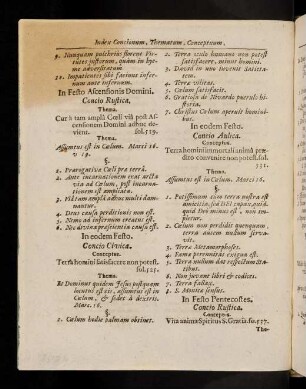 Index Concionum, Thematum, Conceptuum.
9. Nunquam pulchriùs florent Virtutes justorum, quàm in hyeme adversitatum
10. Impatientis sibi faciunt infernum ante infernum.
In Festo Ascensionis Domini.
Concio Rustica.
Thema.
Cur tam ampla Cœli via post Ascensionem Domini adhuc deviens. fol.519.
Thema.
Assumtus est in Cœlum. Marci 16. v 19.
§.
1. Prærogativa Cœli præ terrâ.
2. Ante incarnationem erat arcta via ad Cœlum, post incarnationem est ambulata.
3. Viæ tam amplâ adhuc multi damnantur.
4. Deus causa perditionis non est.
5. Nemo ad infernum creatus est.
6. Nec divina præscientia causa est.
In eodem Festo.
Concio Civica.
Conceptus.
Terra homini satisfacere non potest. fol.525.
Thema.
Et Dominus quidem Jesus postquam locutus est eis, assumtus est in Cœlum, & sedet à dextris. Marc. 16.
§.
1. Cœlum hodie palmam obtinet.
2. Terra etsi humana non potest satisfacere, minus homini.
3. David in uno invenit satisfactem.
4. Terra vilitas.
5. Cœlum satisfacit.
6. Gratiosa de Nivardo puerulo historia.
7. Christus Cœlum aperuit hominibus.
In eodem Festo.
Concio Aulica.
Conceptus.
Terra homini immortali animâ prædito convenire non potest. fol. 531.
Thema.
Assumtus est in Cœlum. Marci 16.
§.
1.
2. Cœlum non perdidit quenquam
3. Terra Metamorphoses.
4. Fama perennitas exigua est.
5. Terra nullum dat respectum Statibus.
6. Non juvant libri & codices.
7. Terra fallax.
8. S. Monica sensus.
In Festo Pentecostes.
Concio Rustica.
Conceptus.
Vita animæ Spiritus S. Gratia. fo.537.
The-